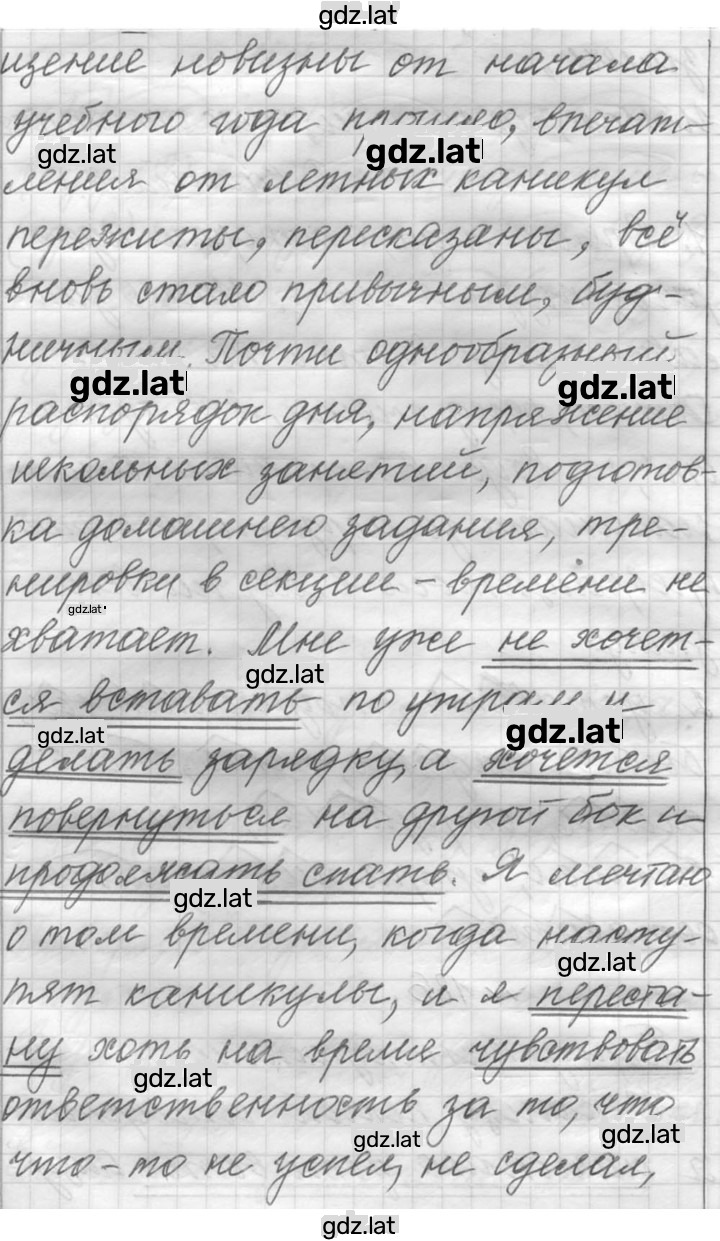 gdz.lat
щение новизны от начала
учебного года прошло, впечат-
gdz.lat gdz.lat
ления от летных каникул
пережиты, пересказаны, всё
вновь стало привычным, буд-
ничным. Почти однообразный
gdz.lat gdz.lat
распорядок дня, напряжение
школьных занятий, подготов-
ка домашнего задания, тре-
нировки в секции - времени не
gdz.lat
хватает. Мне уже не хочет-
gdz.lat
ся вставать по утрам и
gdz.lat gdz.lat
делать зарядку, а хочется
повернуться на другой бок и
продолжать спать. Я мечтаю
gdz.lat
о том времени, когда насту-
gdz.lat
пят каникулы, и я переста-
ну хоть на время чувствовать
gdz.lat
ответственность за то, что
gdz.lat gdz.lat
что-то не успел, не сделал,
gdz.lat